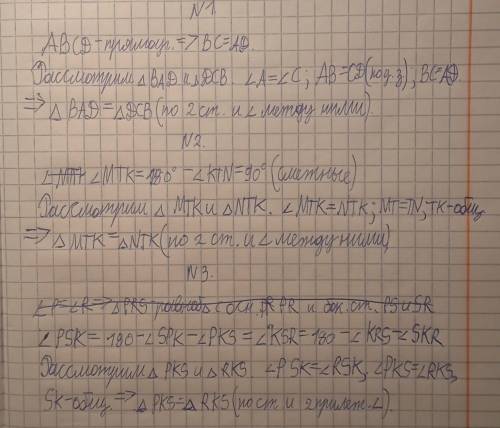 N1.
ABCD-прямоуг. => BC=AD.
Рассмотрим △BAD и △DCB. ∠A=∠C; AB=CD(по д.з), BC=AD
=> △BAD=△DCB(по 2 ст. и ∠ между ними).
N2.
△MTK ∠MTK=180°-∠KTN=90°(смежные)
Рассмотрим △MTK и △NTK. ∠MTK=NTK; MT=TN; TK-общ
=> △MTK=△NTK(по 2 ст. и ∠ между ними)
N3.
∠P=∠R => △PRS равноб с осн. PR и бок. ст. PS и SR
∠PSK=180-∠SPK-∠PKS=∠KSR=180-∠KRS-∠SKR
Рассмотрим △PKS и △RKS. ∠PSK=∠RSK, ∠PKS=∠RKS,
SK-общ => △PKS=△RKS(по ст. и 2 прилеж. ∠).